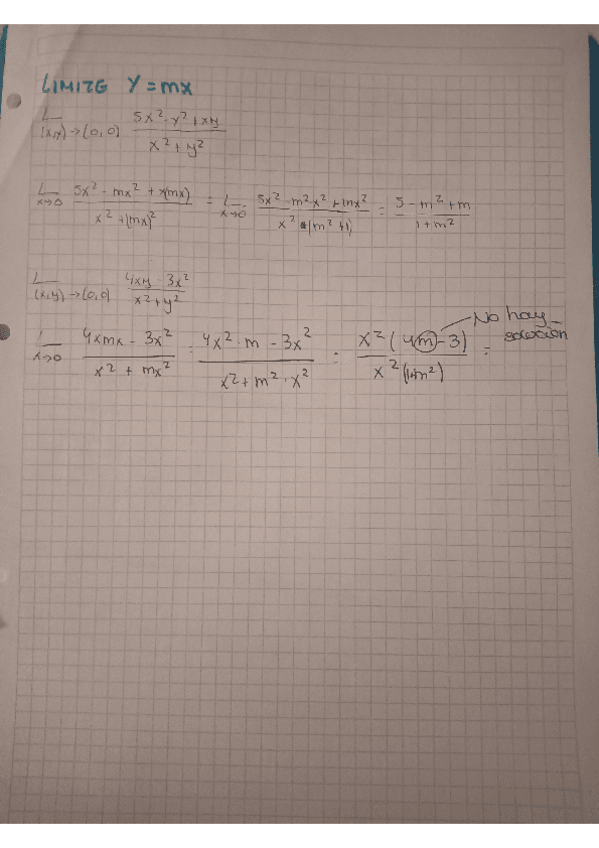 LIMITE Y = mx
L (x,y)→(0,0) (5x² - y² + xy)/(x² + y²)
L x→0 (5x² - mx² + x(mx))/(x² + (mx)²) = L x→0 (5x² - m²x² + mx²)/(x² (m² + 1)) = (5 - m² + m)/(1 + m²)
L (x,y)→(0,0) (4xy - 3x²)/(x² + y²)
L x→0 (4xmx - 3x²)/(x² + mx²) = (4x² · m - 3x²)/(x² + m² · x²) = (x² (4m - 3))/(x² (1+m²)) =
No hay
solución